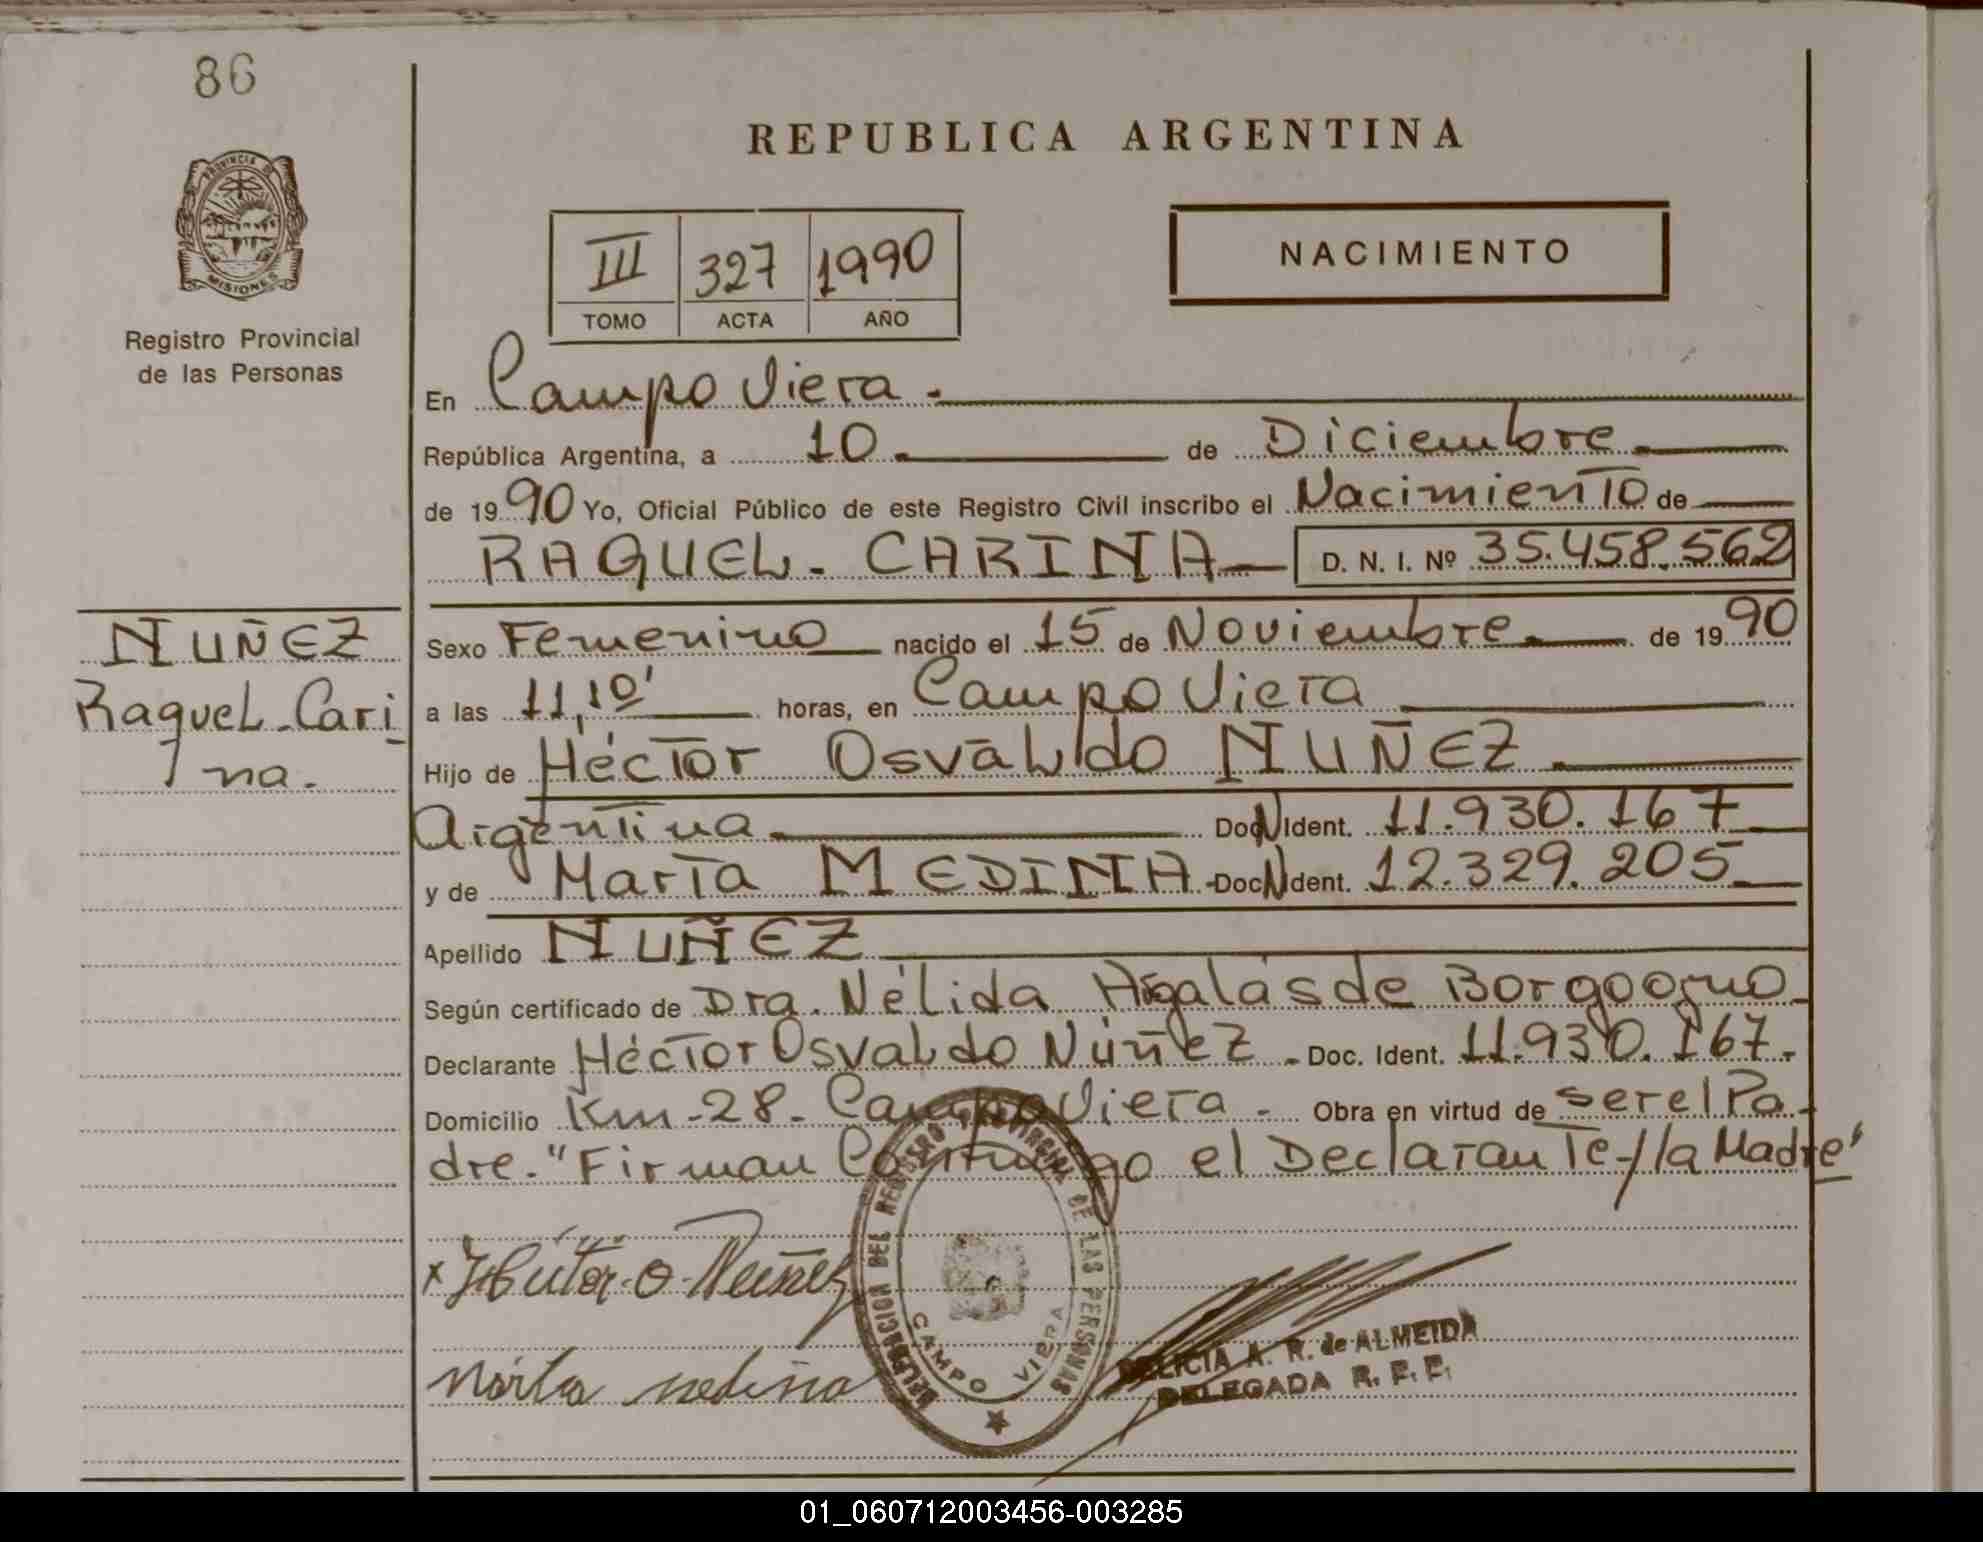 86
REPUBLICA ARGENTINA
PROVINCIA DE
MISIONES
Registro Provincial
de las Personas
III 327 1990
TOMO ACTA AÑO
NACIMIENTO
En Campo Viera.
República Argentina, a 10. de Diciembre
de 1990 Yo, Oficial Público de este Registro Civil inscribo el Nacimiento de
RAQUEL. CARINA D. N. I. Nº 35.458.562
NUÑEZ
Raquel Cari
na.
Sexo Femenino nacido el 15 de Noviembre. de 1990
a las 11,10' horas, en Campo Viera
Hijo de Héctor Osvaldo NUÑEZ.
Argentina Doc. Ident. 11.930.167
y de Marta MEDINA Doc. Ident. 12.329.205
Apellido NUÑEZ
Según certificado de Dra. Nélida de
Declarante Héctor Osvaldo Núñez. Doc. Ident. 11.930.167.
Domicilio Km-28- Campo Viera. Obra en virtud de ser el Pa-
dre. "Firman Conmigo el Declarante-/la Madre"
x Héctor.O.Nuñez
Marta medina
DELEGACION DEL REGISTRO PROVINCIAL DE LAS PERSONAS
CAMPO VIERA
DELICIA A. R. de ALMEIDA
DELEGADA R. P. P.
01_060712003456-003285